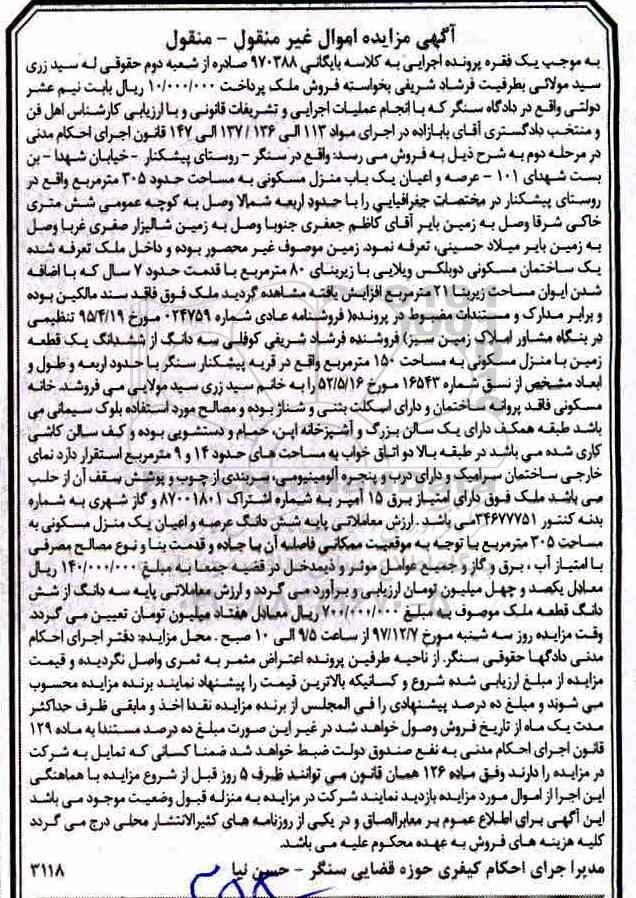 آگهی مزایده اموال غیر منقول - منقول
به موجب یک فقره پرونده اجرایی به کلاسه بایگانی ۹۷۰۳۸۸ صادره از شعبه دوم حقوقی له سید زری
سید مولائی بطرفیت فرشاد شریفی بخواسته فروش ملک پرداخت ۱۰/۰۰۰/۰۰۰ ریال بابت نیم عشر
دولتی واقع در دادگاه سنگر که با انجام عملیات اجرایی و تشریفات قانونی و با ارزیابی کارشناس اهل فن
و منتخب دادگستری آقای بابازاده در اجرای مواد ۱۱۳ الی ۱۳۶ / ۱۳۷ الی ۱۴۷ قانون اجرای احکام مدنی
در مرحله دوم به شرح ذیل به فروش می رسد: واقع در سنگر - روستای پیشکنار - خیابان شهدا - بن
بست شهدای ۱۰۱ - عرصه و اعیان یک باب منزل مسکونی به مساحت حدود ۳۰۵ مترمربع واقع در
روستای پیشکنار در مختصات جغرافیایی را با حدود اربعه شمالا وصل به کوچه عمومی شش متری
خاکی شرقا وصل به زمین بایر آقای کاظم جعفری جنوبا وصل به زمین شالیزار صفری غربا وصل
به زمین بایر میلاد حسینی، تعرفه نمود. زمین موصوف غیر محصور بوده و داخل ملک تعرفه شده
یک ساختمان مسکونی دوبلکس ویلایی با زیربنای ۸۰ مترمربع با قدمت حدود ۷ سال که با اضافه
شدن ایوان مساحت زیربنا ۲۱ مترمربع افزایش یافته مشاهده گردید ملک فوق فاقد سند مالکین بوده
و برابر مدارک و مستندات مضبوط در پرونده( فروشنامه عادی شماره ۰۲۴۷۵۹ مورخ ۹۵/۴/۱۹ تنظیمی
در بنگاه مشاور املاک زمین سبز) فروشنده فرشاد شریفی کوفلی سه دانگ از ششدانگ یک قطعه
زمین با منزل مسکونی به مساحت ۱۵۰ مترمربع واقع در قریه پیشکنار سنگر با حدود اربعه و طول و
ابعاد مشخص از نسق شماره ۱۶۵۴۳ مورخ ۵۲/۵/۱۶ را به خانم سید زری سید مولایی می فروشد. خانه
مسکونی فاقد پروانه ساختمان و دارای اسکلت بتنی و شناژ بوده و مصالح مورد استفاده بلوک سیمانی می
باشد طبقه همکف دارای یک سالن بزرگ و آشپزخانه اپن، حمام و دستشویی بوده و کف سالن کاشی
کاری شده می باشد در طبقه بالا دو اتاق خواب به مساحت های حدود ۱۴ و ۹ مترمربع استقرار دارد نمای
خارجی ساختمان سرامیک و دارای درب و پنجره آلومینیومی، سربندی از چوب و پوشش سقف آن از حلب
می باشد ملک فوق دارای امتیاز برق ۱۵ آمپر به شماره اشتراک ۸۷۰۰۱۸۰۱ و گاز شهری به شماره
بدنه کنتور ۳۴۶۷۷۷۵۱می باشد . ارزش معاملاتی پایه شش دانگ عرصه و اعیان یک منزل مسکونی به
مساحت ۳۰۵ مترمربع با توجه به موقعیت ممکانی فاصله آن با جاده و قدمت بنا و نوع مصالح مصرفی
با امتیاز آب ، برق و گاز و جمیع عوامل موثر و ذیمدخل در قضیه جمعا به مبلغ ۱۴۰/۰۰۰/۰۰۰ ریال
معادل یکصد و چهل میلیون تومان ارزیابی و برآورد می گردد و ارزش معاملاتی پایه سه دانگ از شش
دانگ قطعه ملک موصوف به مبلغ ۷۰۰/۰۰۰/۰۰۰ ریال معادل هفتاد میلیون تومان تعیین می گردد.
وقت مزایده روز سه شنبه مورخ ۹۷/۱۲/۷ از ساعت ۹/۵ الی ۱۰ صبح . محل مزایده: دفتر اجرای احکام
مدنی دادگها حقوقی سنگر. از ناحیه طرفین پرونده اعتراض مثمر به ثمری واصل نگردیده و قیمت
مزایده از مبلغ ارزیابی شده شروع و کسانیکه بالاترین قیمت را پیشنهاد نمایند برنده مزایده محسوب
می شوند و مبلغ ده درصد پیشنهادی را فی المجلس از برنده مزایده نقدا اخذ و مابقی ظرف حداکثر
مدت یک ماه از تاریخ فروش وصول خواهد شد در غیر این صورت مبلغ ده درصد مستندا به ماده ۱۲۹
قانون اجرای احکام مدنی به نفع صندوق دولت ضبط خواهد شد ضمنا کسانی که تمایل به شرکت
در مزایده را دارند وفق ماده ۱۲۶ همان قانون می توانند ظرف ۵ روز قبل از شروع مزایده با هماهنگی
این اجرا از اموال مورد مزایده بازدید نمایند شرکت در مزایده به منزله قبول وضعیت موجود می باشد
این آگهی برای اطلاع عموم بر معابرالصاق و در یکی از روزنامه های کثیرالانتشار محلی درج می گردد
کلیه هزینه های فروش به عهده محکوم علیه می باشد.
مدیرا جرای احکام کیفری حوزه قضایی سنگر - حسن نیا ۳۱۱۸